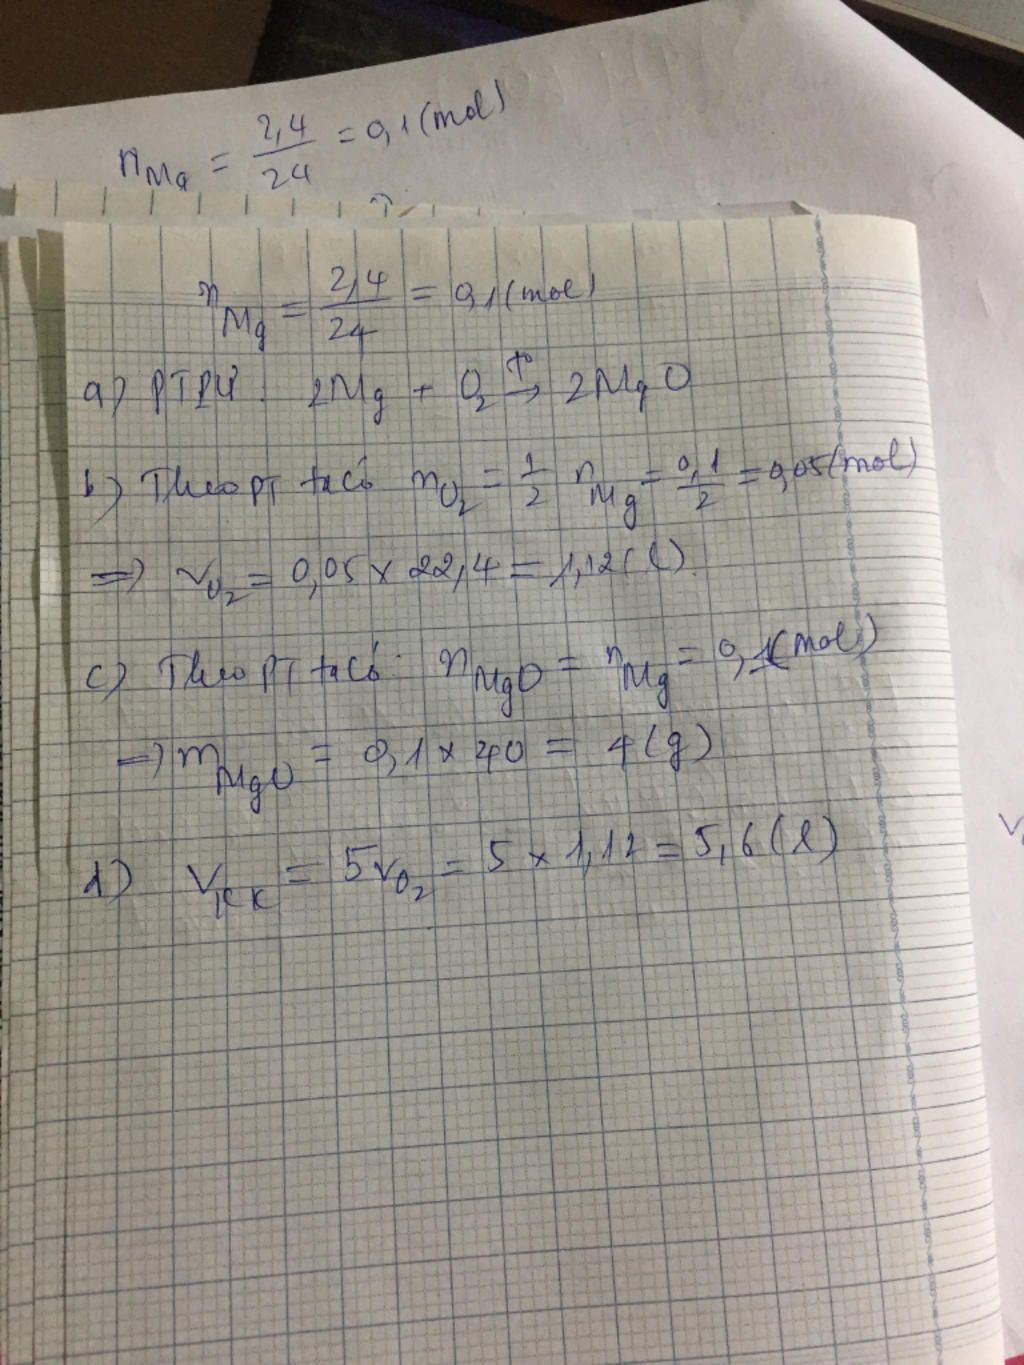 nMg = 2,4/24 = 0,1 (mol)
nMg = 2,4/24 = 0,1 (mol)
a) PTPƯ: 2Mg + O2 -t°-> 2MgO
b) Theo PT ta có nO2 = 1/2 nMg = 0,1/2 = 0,05 (mol)
=> VO2 = 0,05 x 22,4 = 1,12 (l).
c) Theo PT ta có: nMgO = nMg = 0,1 (mol)
=> mMgO = 0,1 x 40 = 4 (g)
d) VKK = 5VO2 = 5 x 1,12 = 5,6 (l)